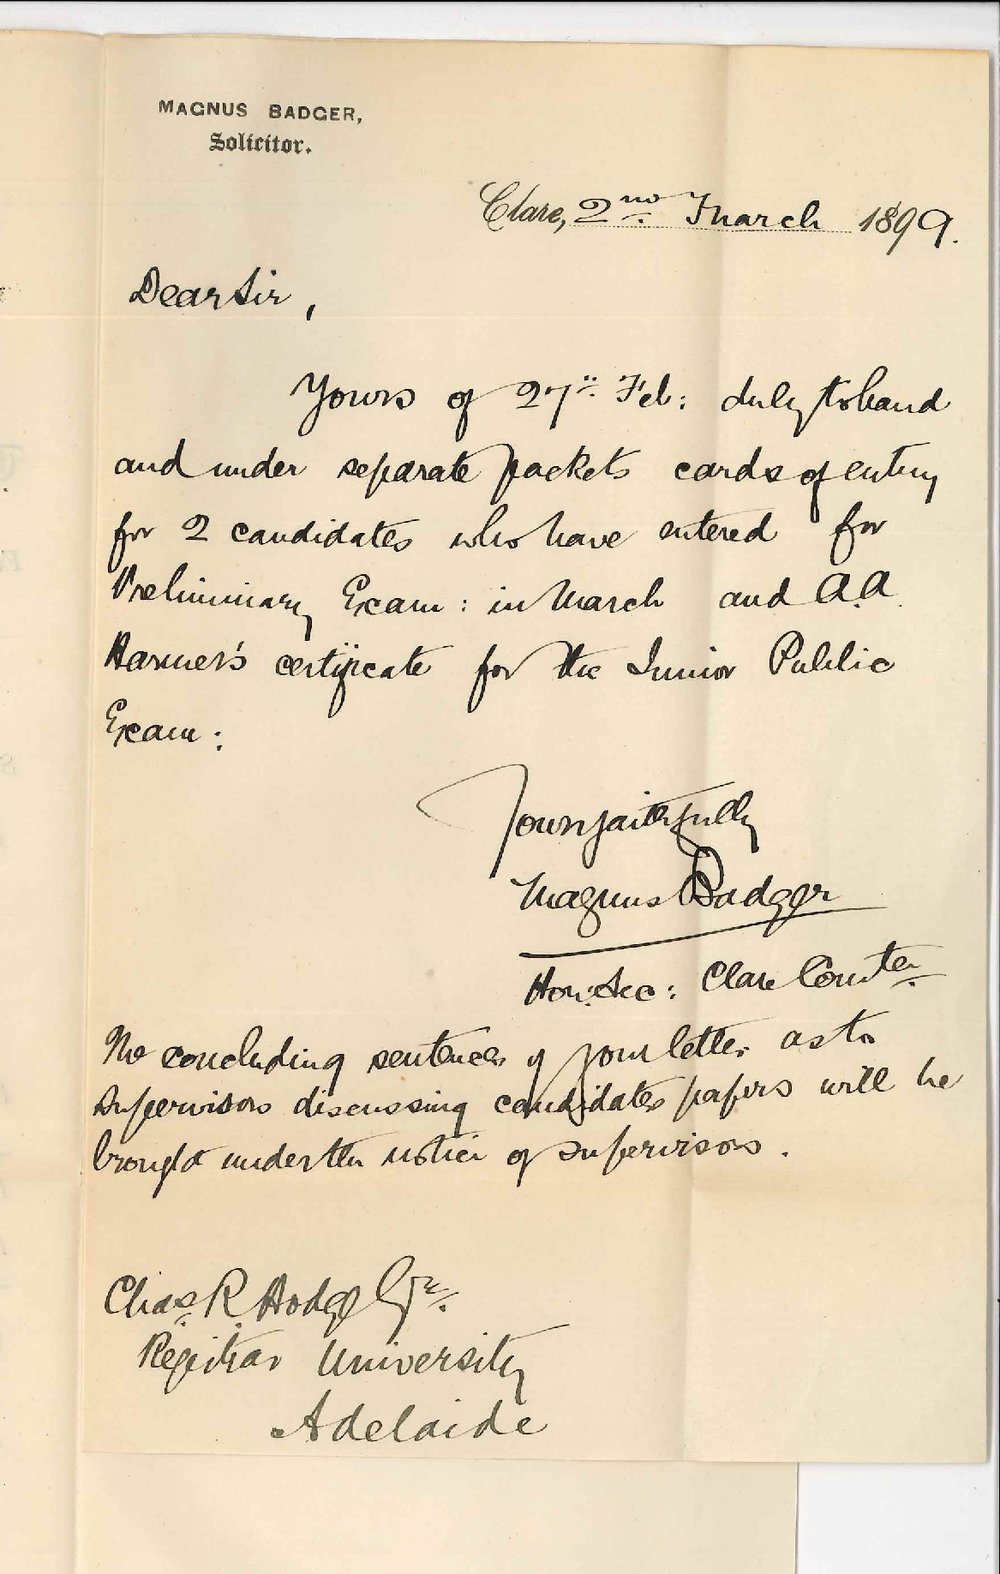 MAGNUS BADGER,
Solicitor.
Clare, 2nd March 1899.
Dear Sir,
Yours of 27th Feb: duly to hand
and under separate packets cards of entry
for 2 candidates who have entered for
Preliminary Exam: in March and A.A.
Harmer's certificate for the Junior Public
Exam:
Yours faithfully
Magnus Badger
Hon: Sec: Clare Comtee
The concluding sentences of your letter as to
supervisors discussing candidates papers will be
brought under the notice of supervisors.
Chas. R. Hodge Esqre.
Registrar University
Adelaide